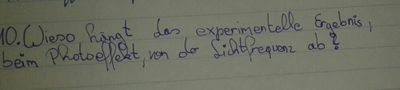 10. Wieso hängt das experimentelle Ergebnis,
beim Photoeffekt, von der Lichtfrequenz ab?